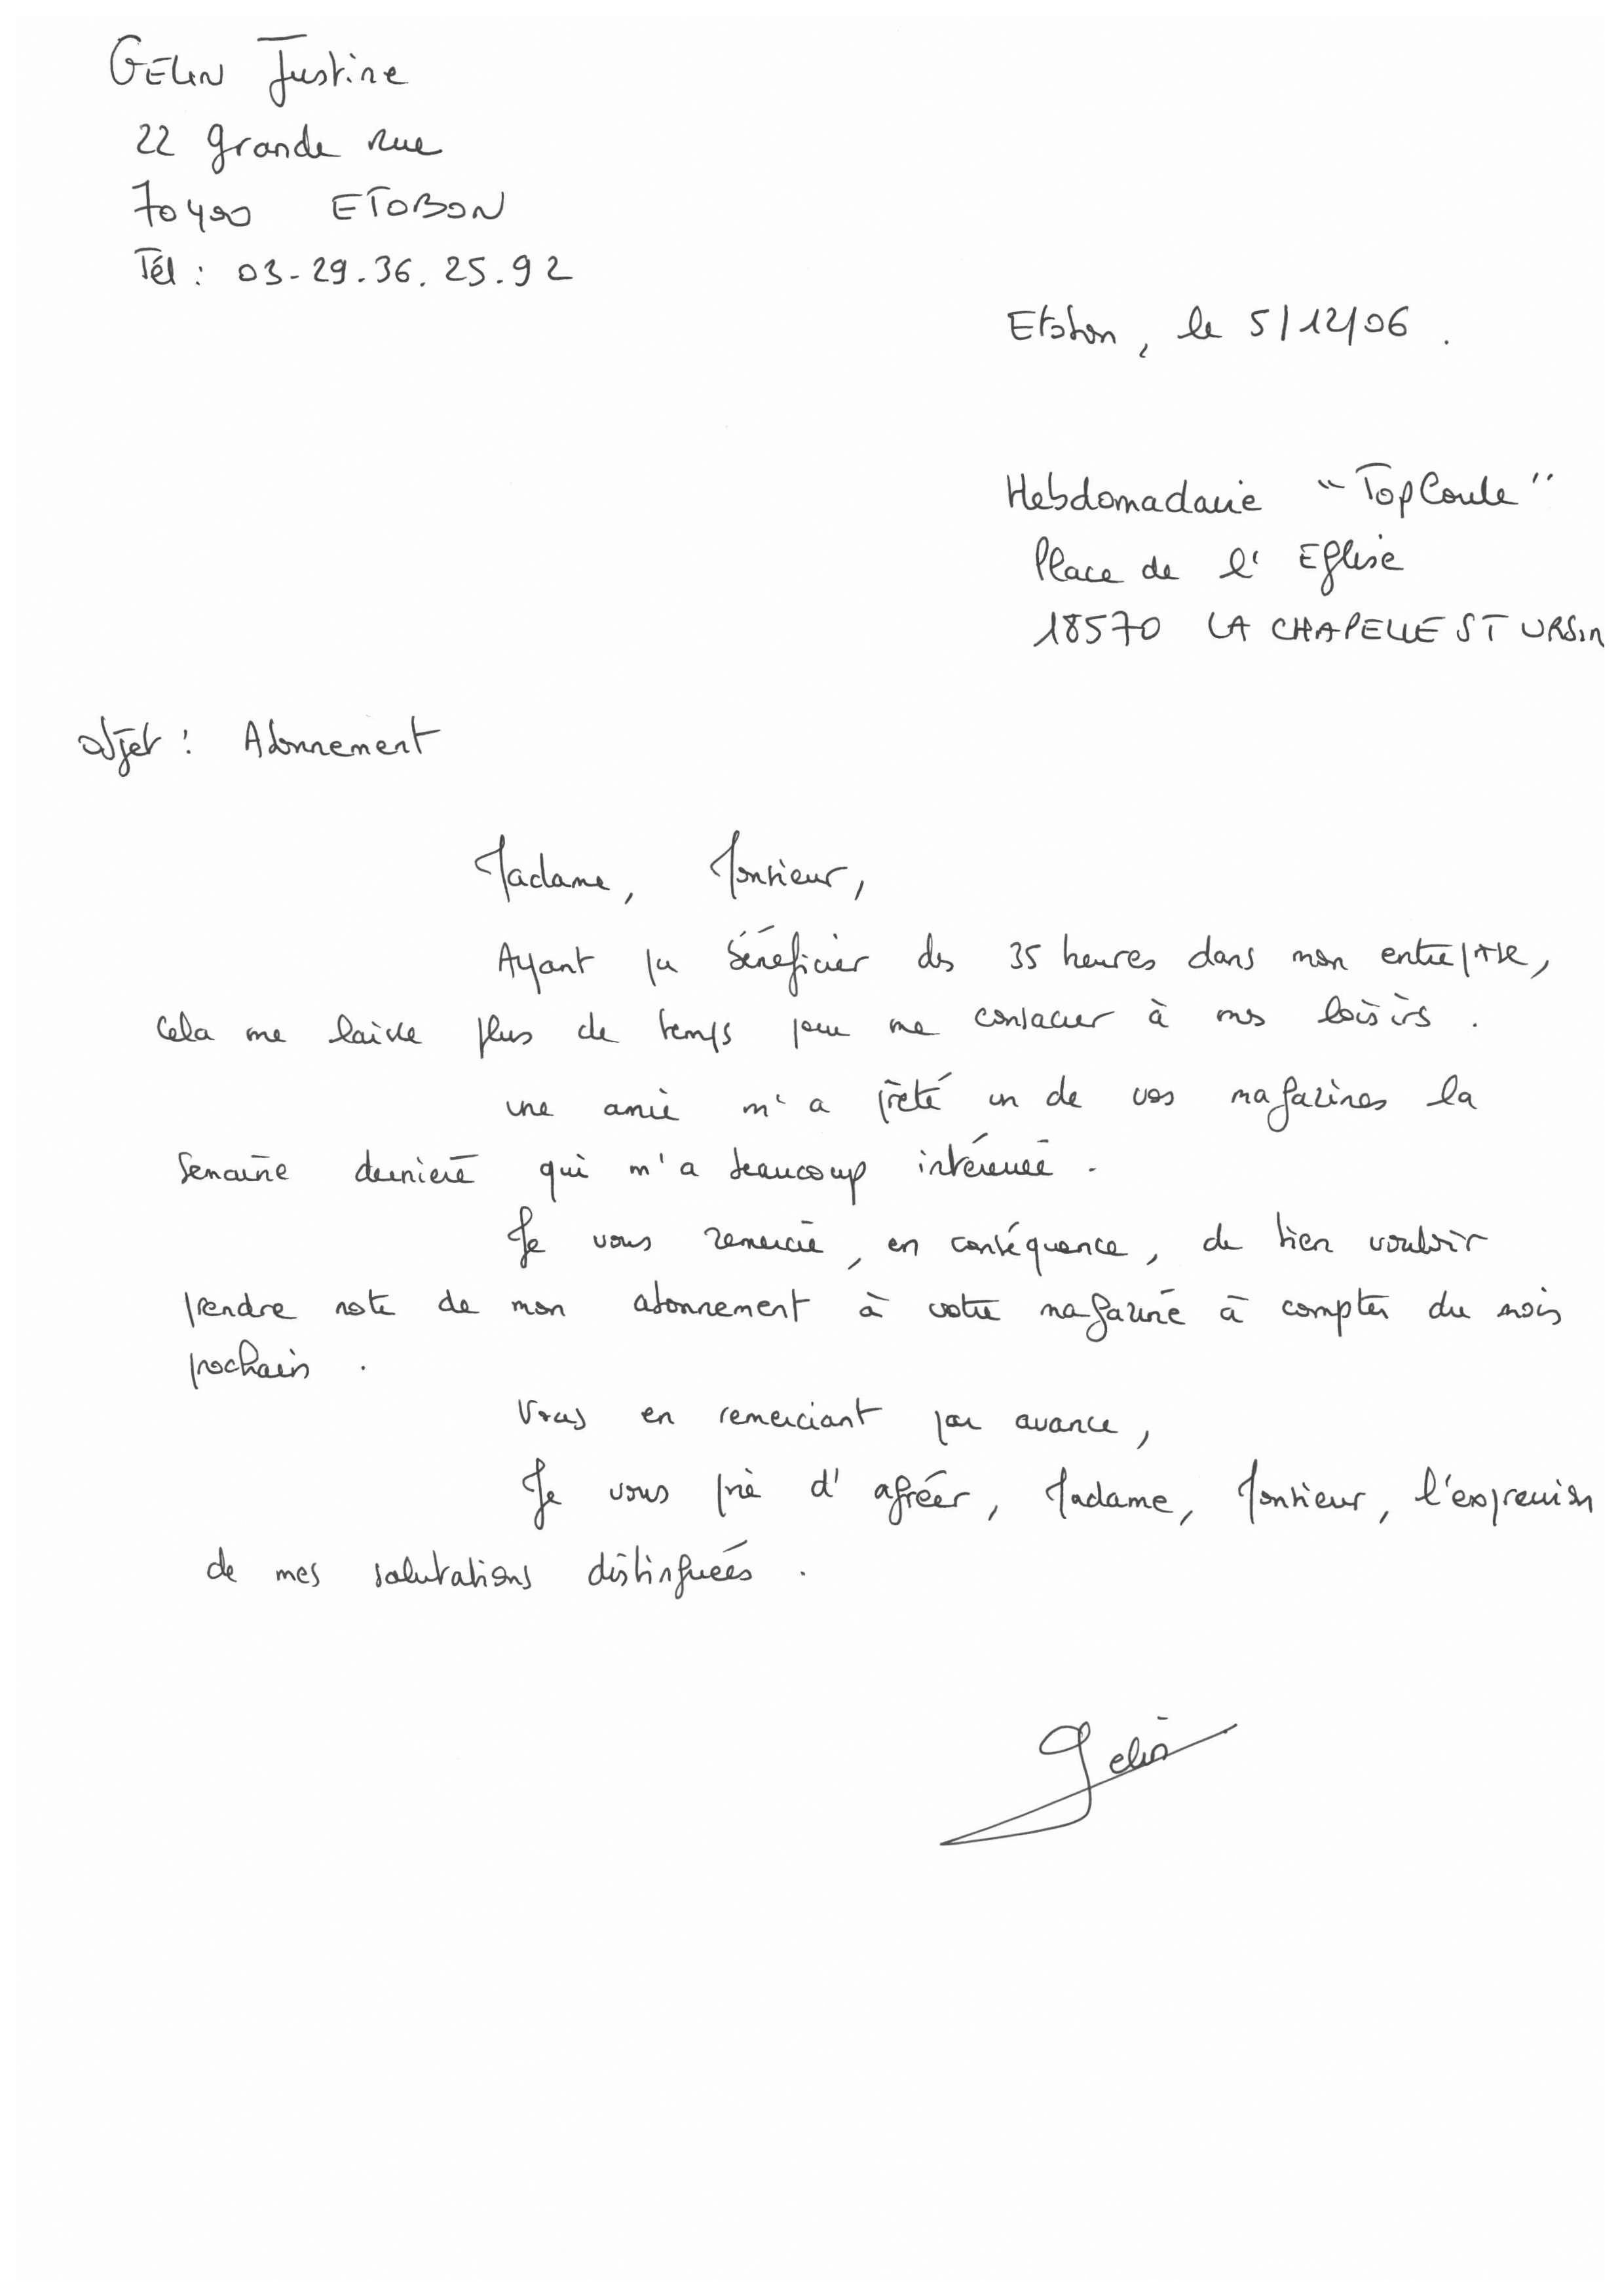 GELIN Justine
22 grande rue
70400 ETOBON
Tél : 03-29.36.25.92
Etobon, le 5/12/06.
Hebdomadaire "TopCoule"
Place de l'Eglise
18570 LA CHAPELLE ST URSIN
Objet : Abonnement
Madame, Monsieur,
Ayant pu bénéficier des 35 heures dans mon entreprise,
cela me laisse plus de temps pour me consacrer à mes loisirs.
une amie m'a prêté un de vos magazines la
semaine dernière qui m'a beaucoup intéressée.
Je vous remercie, en conséquence, de bien vouloir
prendre note de mon abonnement à votre magazine à compter du mois
prochain.
Vous en remerciant par avance,
Je vous prie d'agréer, Madame, Monsieur, l'expression
de mes salutations distinguées.
Gelin